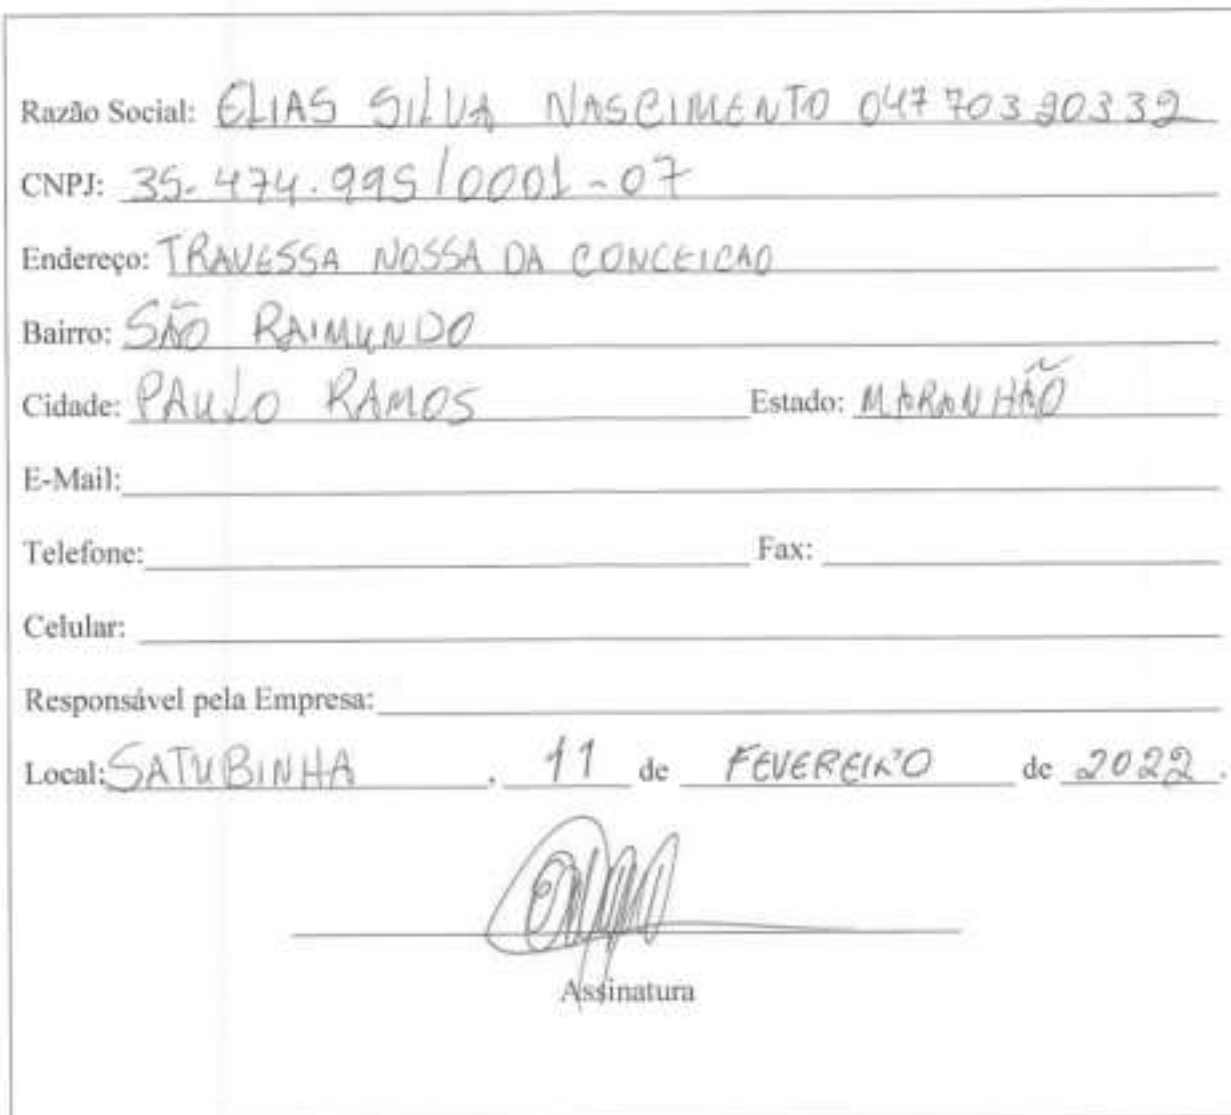 Razão Social: ELIAS SILVA NASCIMENTO 04770320332
CNPJ: 35.474.995/0001-07
Endereço: TRAVESSA NOSSA DA CONCEICAO
Bairro: SÃO RAIMUNDO
Cidade: PAULO RAMOS Estado: MARANHÃO
E-Mail:
Telefone: Fax:
Celular:
Responsável pela Empresa:
Local: SATUBINHA , 11 de FEVEREIRO de 2022.
Assinatura